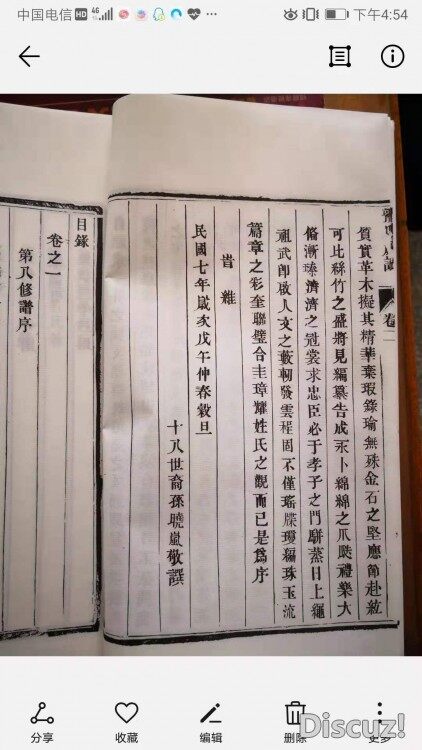 中国电信 HD 46 下午4:54
卷
質實革木擬其精華棄瑕錄瑜無殊金石之堅應節赴絃
可比絲竹之盛將見編纂告成永卜綿綿之瓜瓞禮樂大
俗漸臻濟濟之冠裳求忠臣必于孝子之門駢蒸日上繩
祖武即啟人文之藪軔發雲程固不僅瑤牒瓊編珠玉流
篇章之彩奎聯璧合圭璋耀姓氏之觀而已是爲序
旹維
民國七年歲次戊午仲春穀旦
十八世裔孫曉嵐敬譔
目錄
卷之一
第八修譜序
分享
收藏
编辑
删除
更多
Discuz!